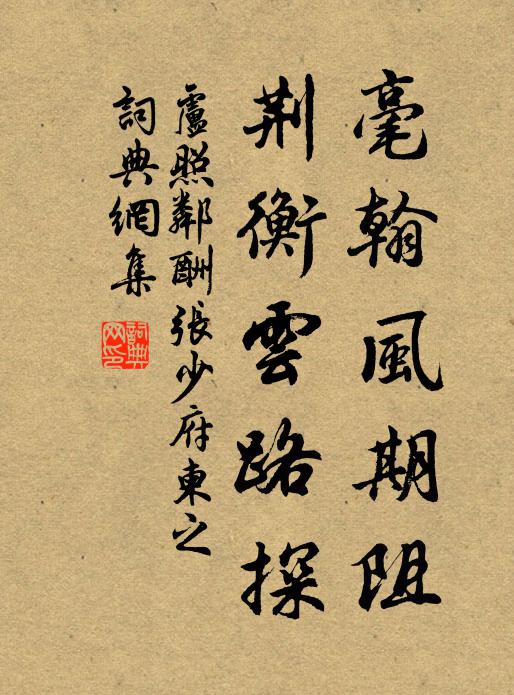 毫翰風期阻
荊衡雲路探
盧照鄰酬張少府東之
詞典網集
詞典
网印